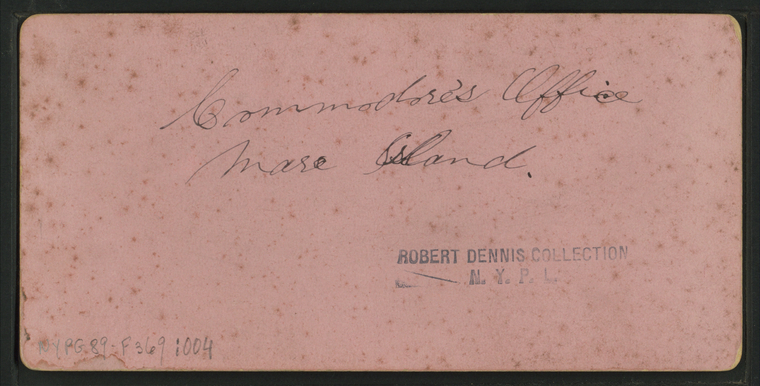 Commodore's Office
Mare Island.
ROBERT DENNIS COLLECTION
N. Y. P. L.
NYPG.89-F369 :004